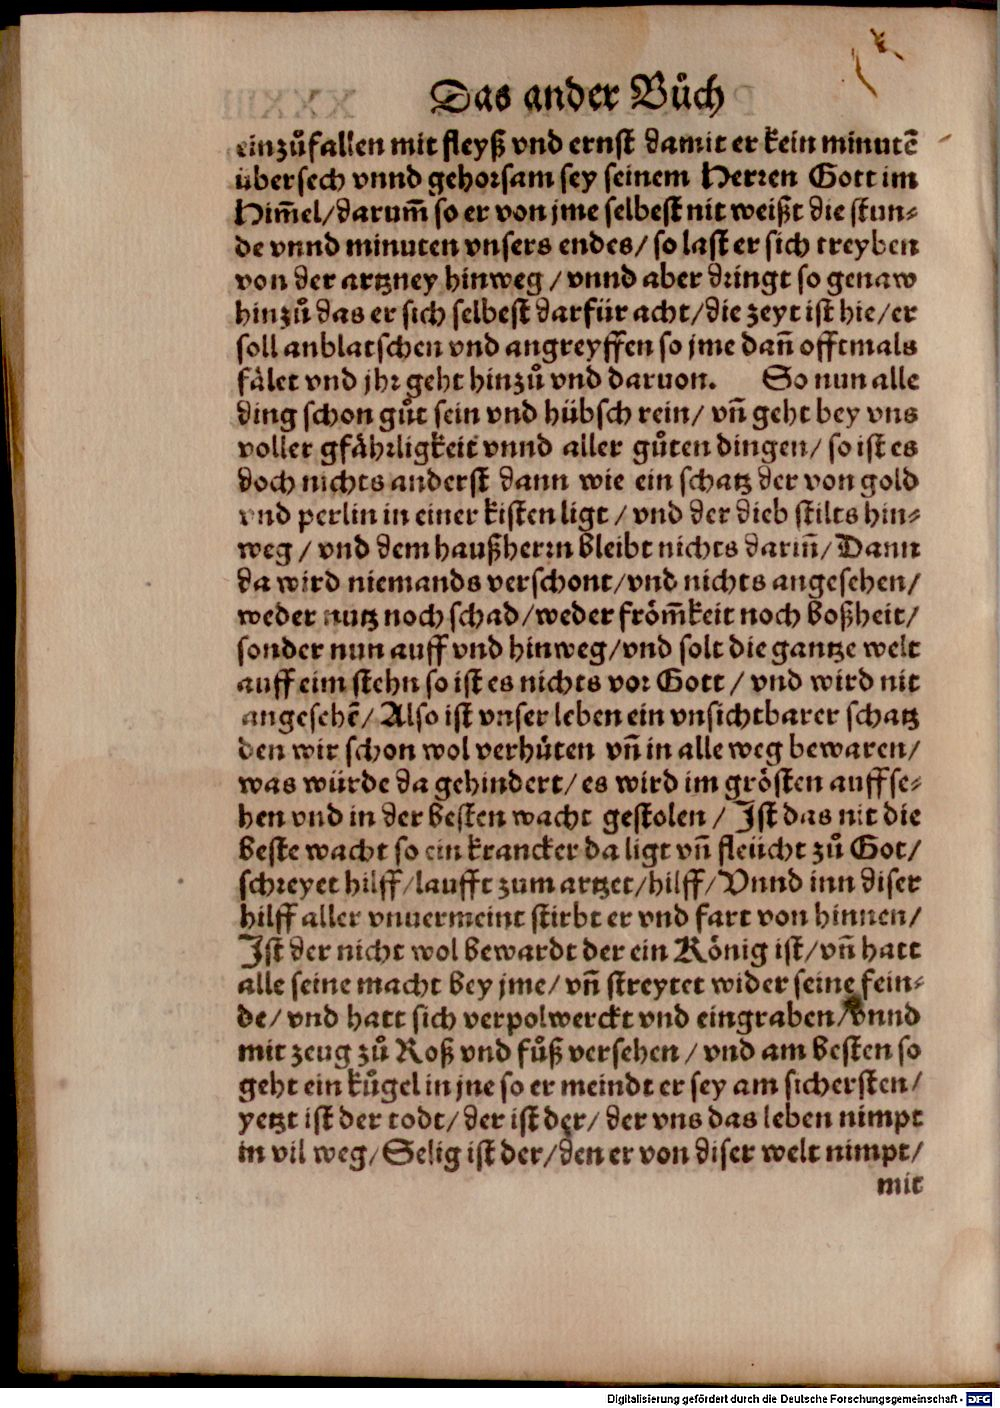 Das ander Bůch
einzůfallen mit fleyß vnd ernst damit er kein minutẽ
übersech vnnd gehorsam sey seinem Herren Gott im
Him̃el/darum̃ so er von jme selbest nit weißt die stun⸗
de vnnd minuten vnsers endes/ so last er sich treyben
von der artzney hinweg / vnnd aber dringt so genaw
hinzů das er sich selbest darfür acht/die zeyt ist hie/er
soll anblatschen vnd angreyffen so jme dañ offtmals
fälet vnd jhr geht hinzů vnd daruon. So nun alle
ding schon gůt sein vnd hübsch rein/ vñ geht bey vns
voller gfährligkeit vnnd aller gůten dingen/ so ist es
doch nichts anderst dann wie ein schatz der von gold
vnd perlin in einer kisten ligt / vnd der dieb stilts hin⸗
weg / vnd dem haußherrn bleibt nichts dariñ/ Dann
da wird niemands verschont/vnd nichts angesehen/
weder nutz noch schad/weder fröm̃keit noch boßheit/
sonder nun auff vnd hinweg/vnd solt die gantze welt
auff eim stehn so ist es nichts vor Gott / vnd wird nit
angesehẽ/ Also ist vnser leben ein vnsichtbarer schatz
den wir schon wol verhüten vñ in alle weg bewaren/
was würde da gehindert/ es wird im grösten auffse⸗
hen vnd in der besten wacht gestolen / Ist das nit die
beste wacht so ein krancker da ligt vñ fleücht zů Got/
schreyet hilff/laufft zum artzet/hilff/ Vnnd inn diser
hilff aller vnuermeint stirbt er vnd fart von hinnen/
Ist der nicht wol bewardt der ein König ist/vñ hatt
alle seine macht bey jme/ vñ streytet wider seine fein⸗
de/ vnd hatt sich verpolwerckt vnd eingraben/vnnd
mit zeug zů Roß vnd fůß versehen / vnd am besten so
geht ein kůgel in jne so er meindt er sey am sichersten/
yetzt ist der todt/ der ist der/ der vns das leben nimpt
in vil weg/ Selig ist der/den er von diser welt nimpt/
mit
Digitalisierung gefördert durch die Deutsche Forschungsgemeinschaft - DFG